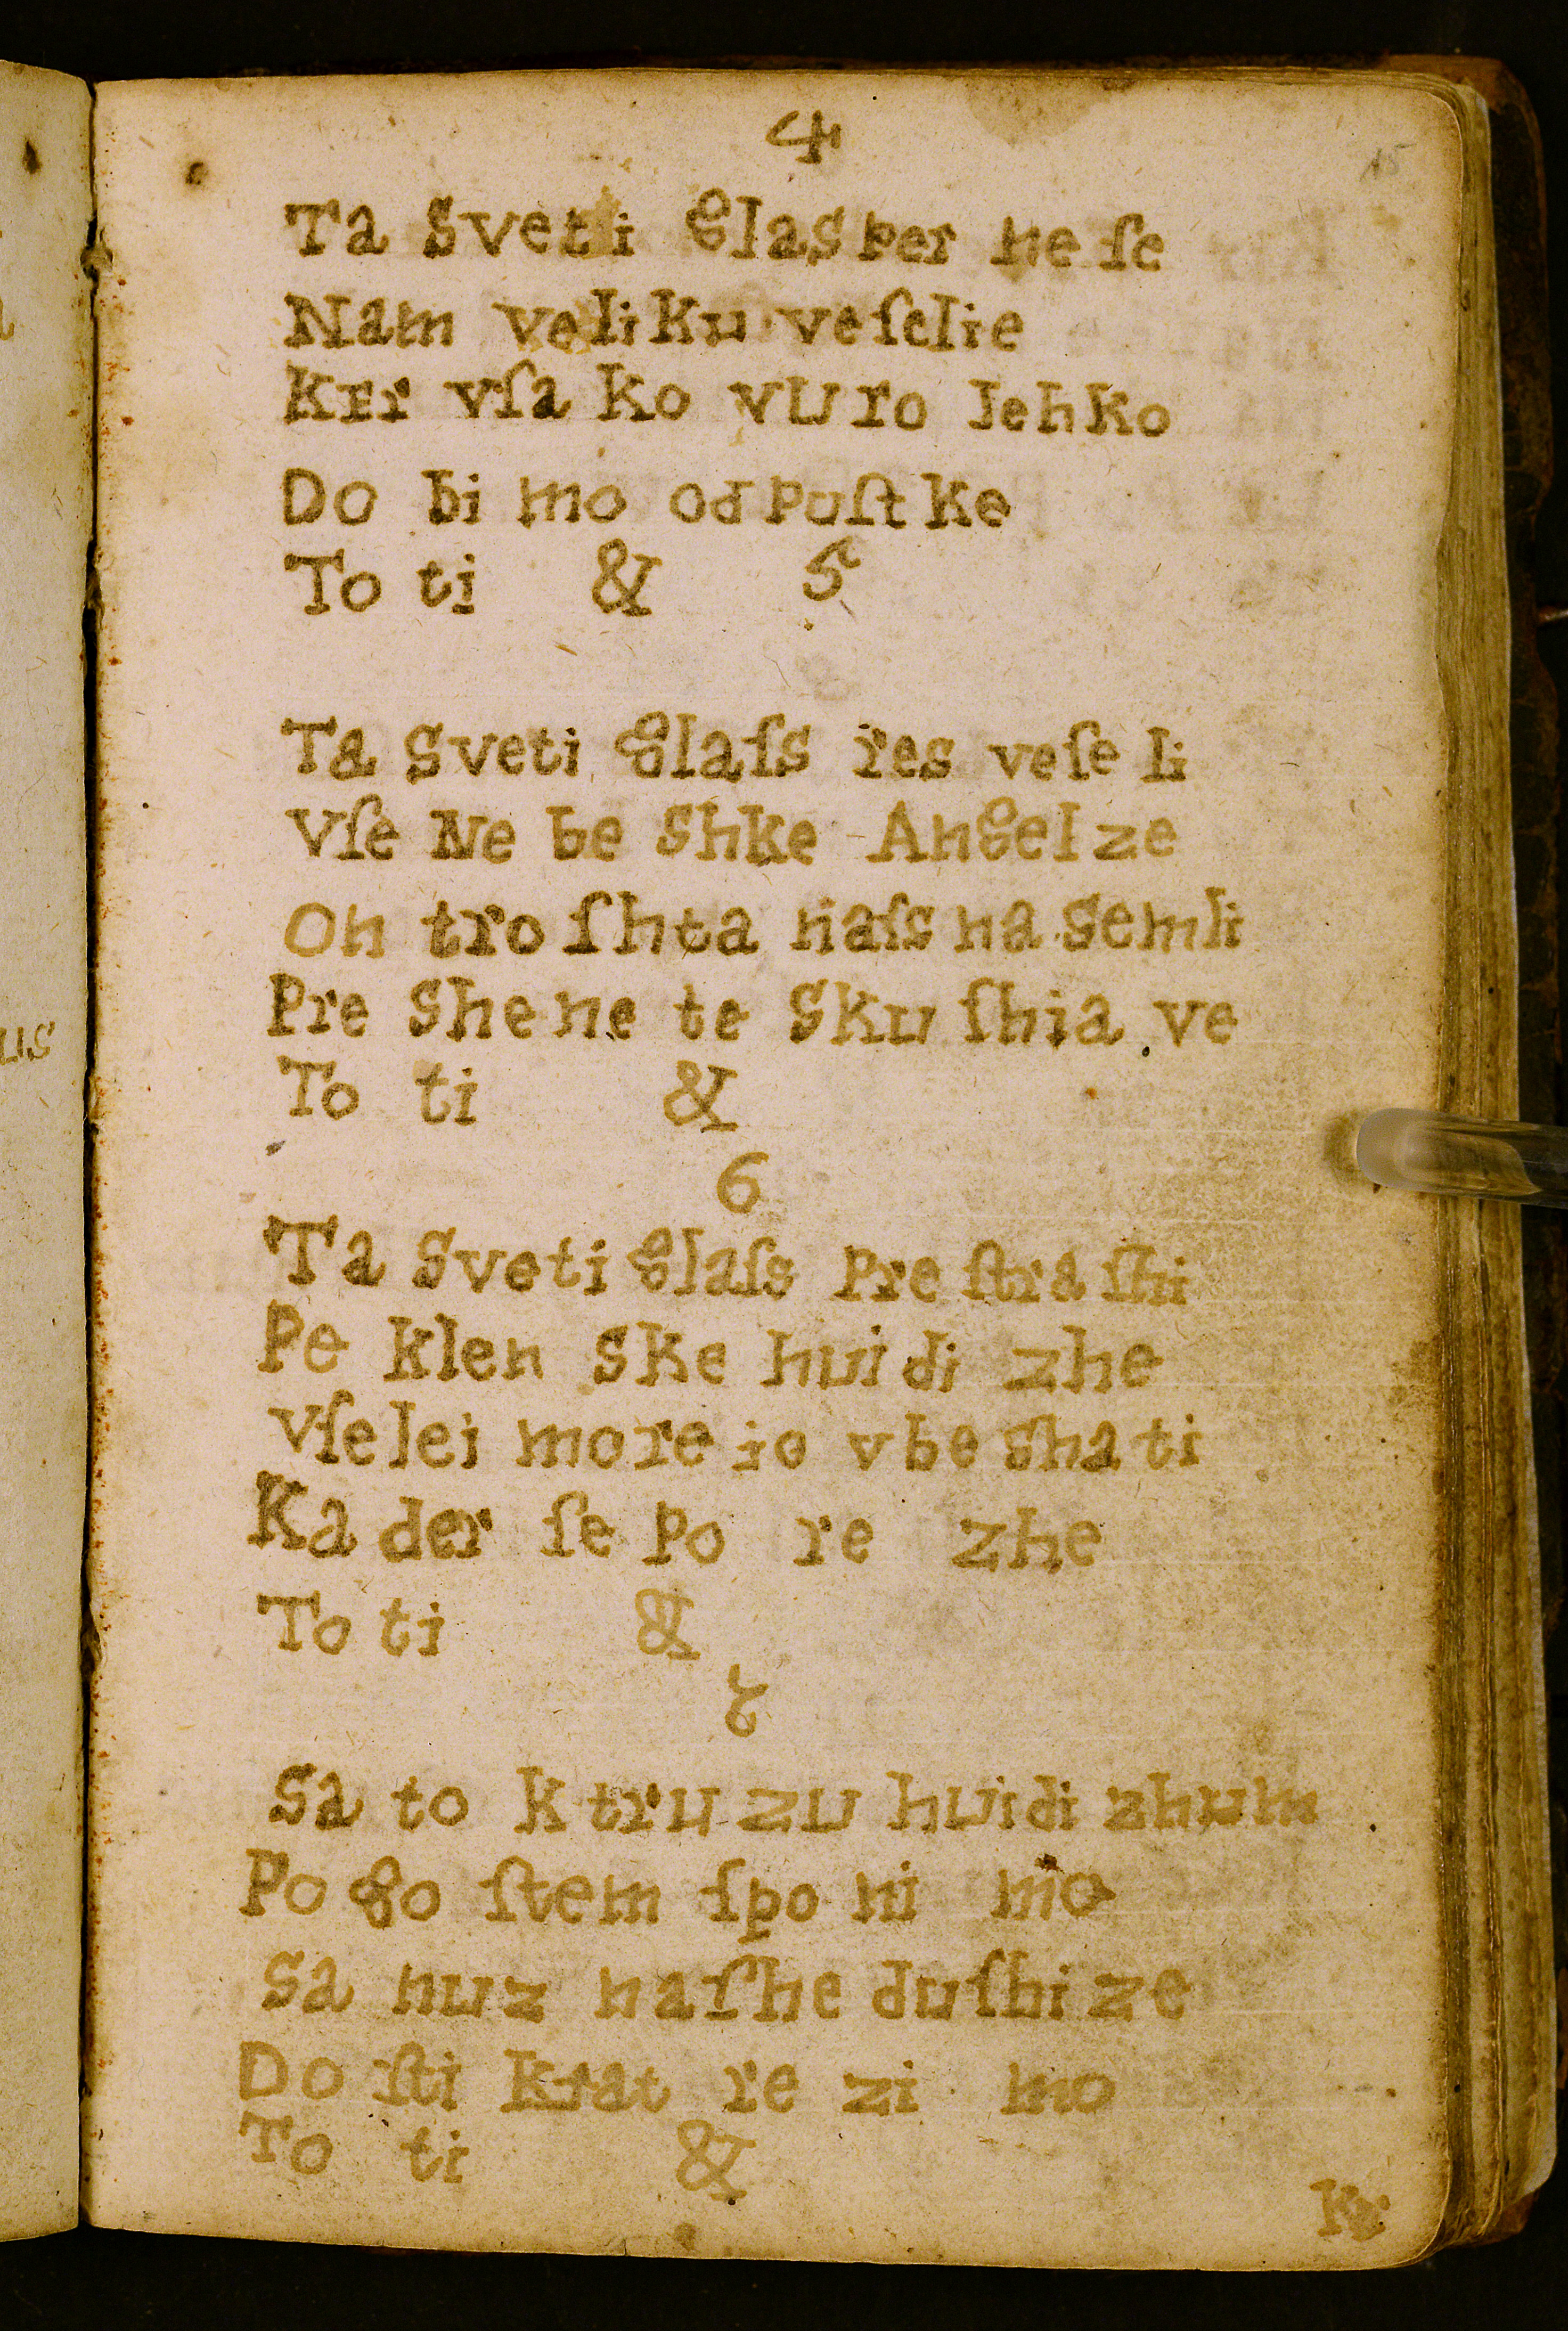 4
15
Ta Sveti Glas per ne ſe
Nam veliku veſelie
Ker vſa ko vuro lehko
Do bi mo od puſt ke
To ti & 5
Ta Sveti Glaſs res veſe li
Vſe Ne be Shke Angel ze
On tro ſhta naſs na Semli
Pre She ne te Sku ſhia ve
To ti &
6
Ta Sveti Glaſs Pre ſtra ſhi
Pe klen Ske hui di zhe
Vſe lei more io vbe sha ti
Ka der ſe Po re zhe
To ti &
7
Sa to k tru zu hudi zhum
Po go ſtem ſpo ni mo
Sa nuz naſhe duſhi ze
Do ſti krat re zi mo
To ti &
Ker